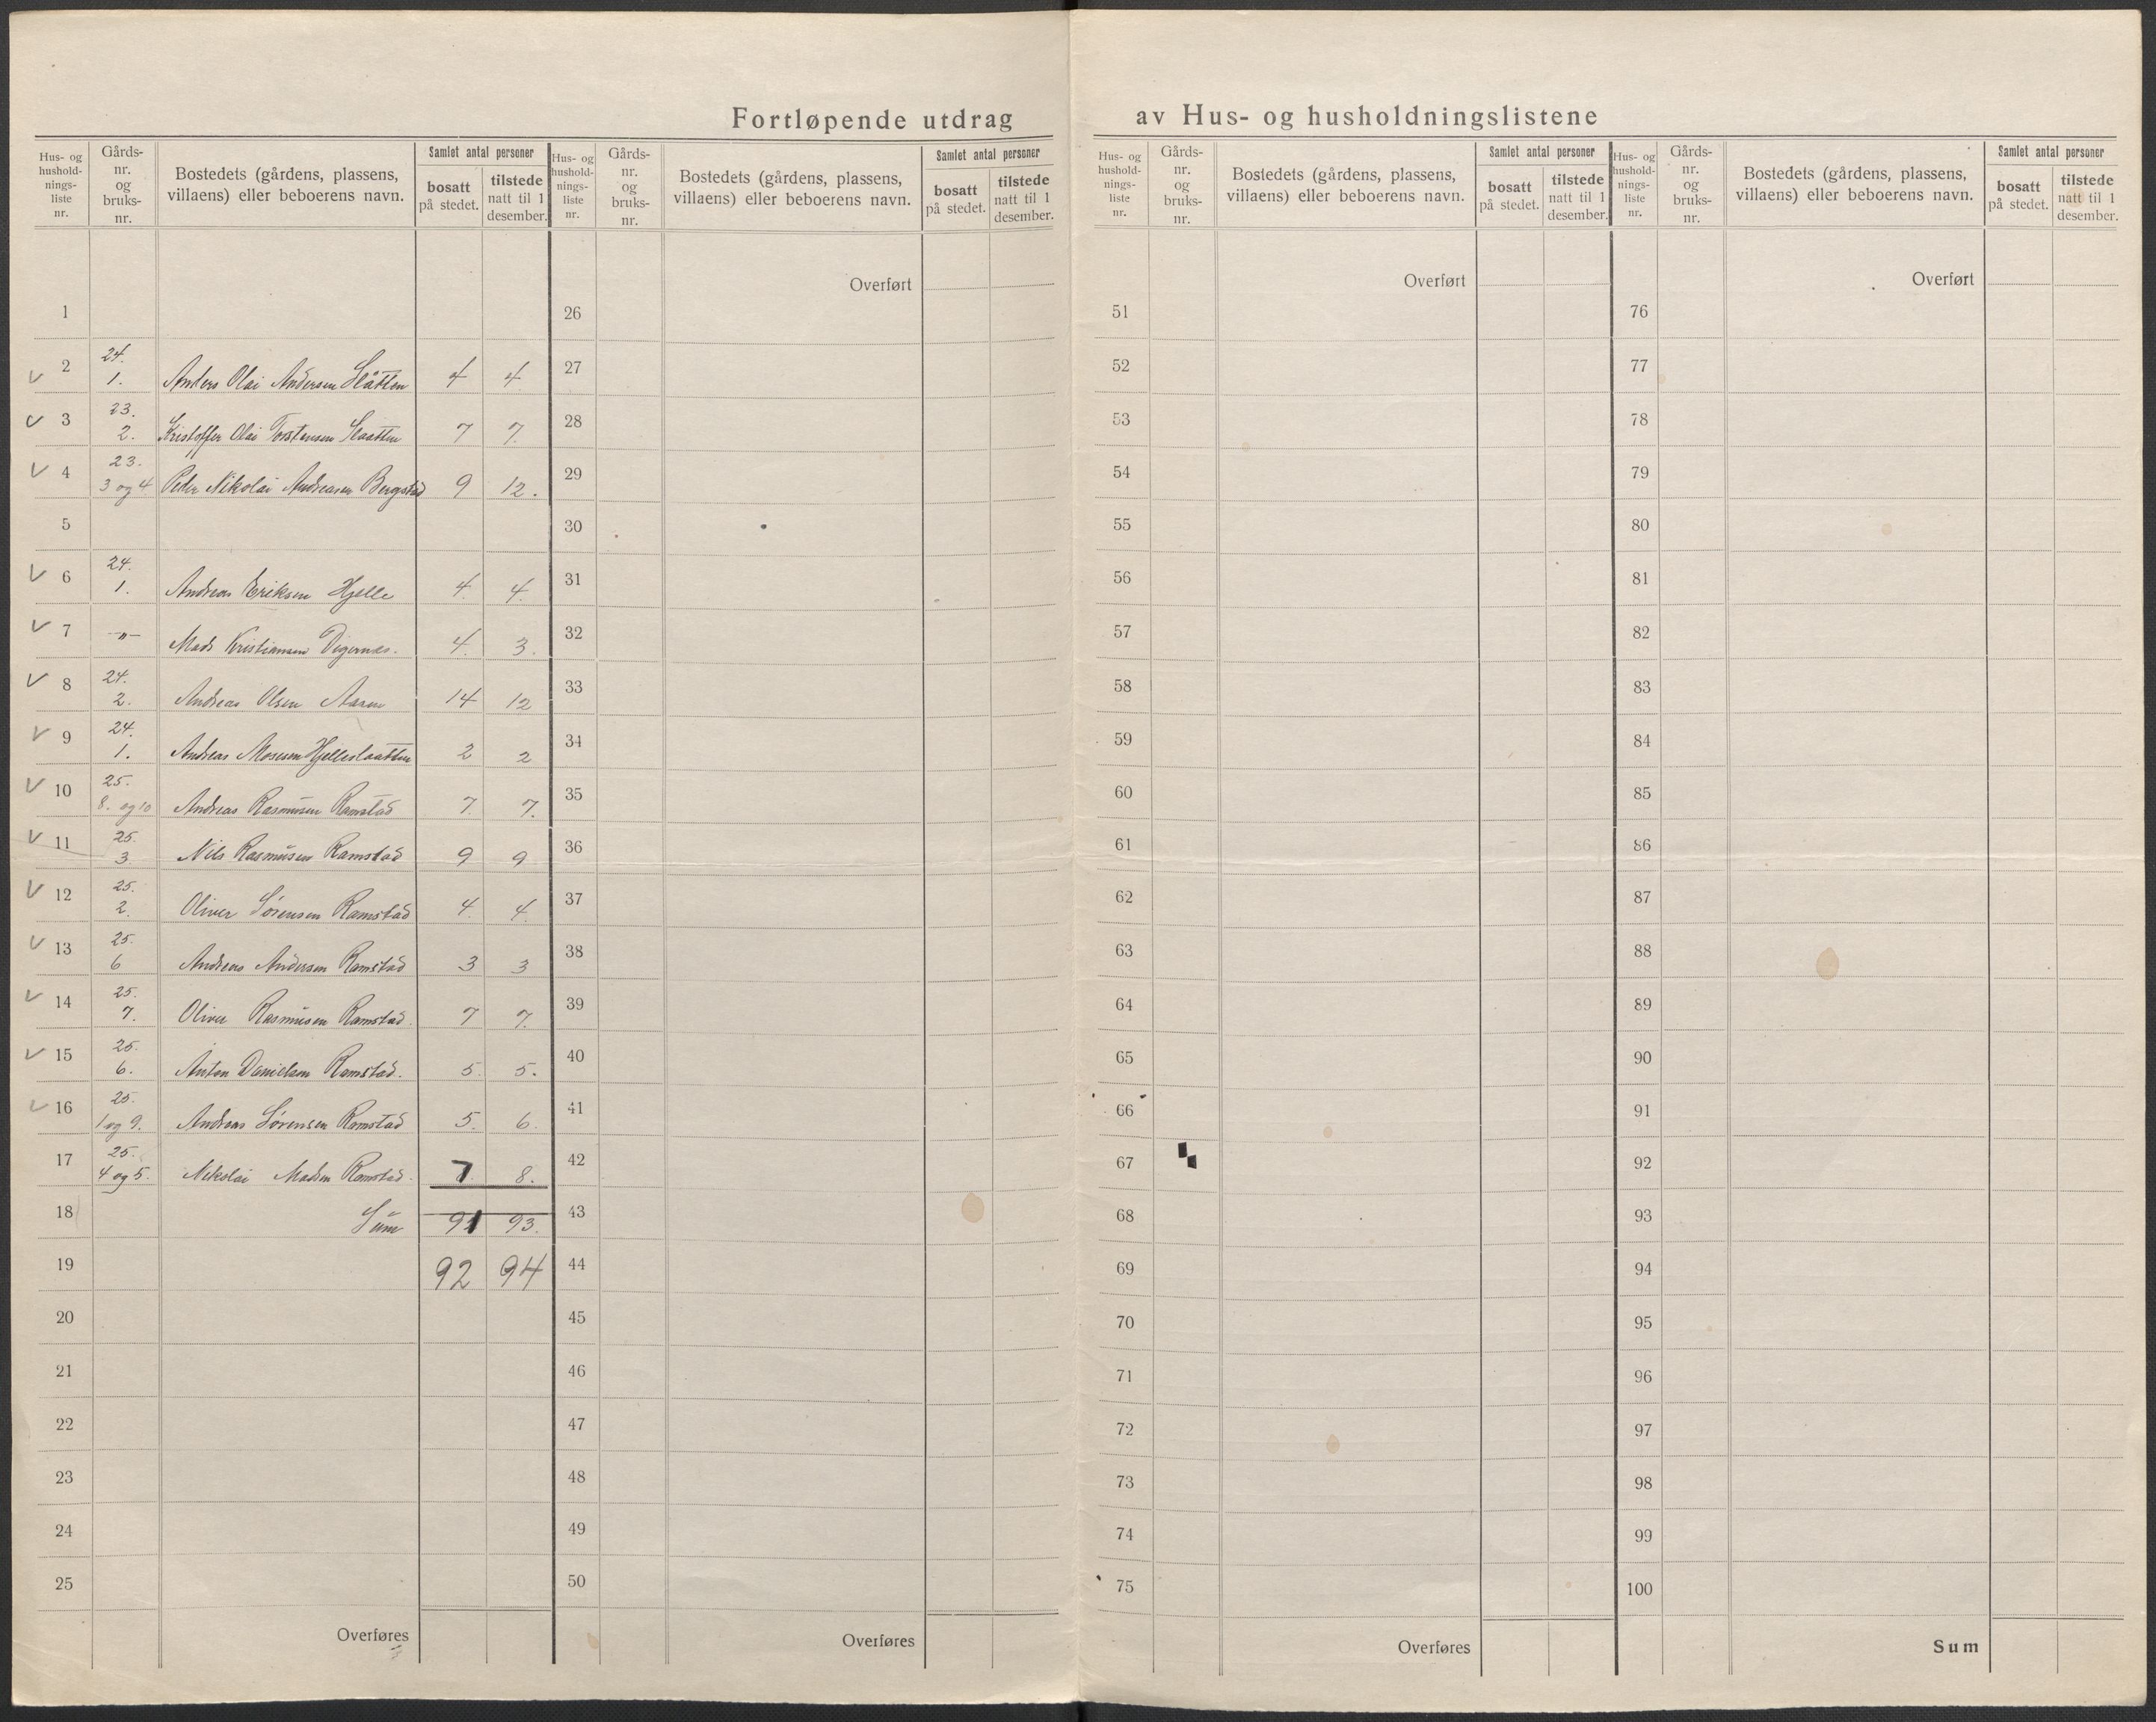 Fortløpende utdrag av Hus- og husholdningslistene
Hus- og hushold-nings-liste nr. Gårds-nr. og bruks-nr. Bostedets (gårdens, plassens, villaens) eller beboerens navn. Samlet antal personer bosatt på stedet. tilstede natt til 1 desember.
Hus- og hushold-nings-liste nr. Gårds-nr. og bruks-nr. Bostedets (gårdens, plassens, villaens) eller beboerens navn. Samlet antal personer bosatt på stedet. tilstede natt til 1 desember.
Hus- og hushold-nings-liste nr. Gårds-nr. og bruks-nr. Bostedets (gårdens, plassens, villaens) eller beboerens navn. Samlet antal personer bosatt på stedet. tilstede natt til 1 desember.
Hus- og hushold-nings-liste nr. Gårds-nr. og bruks-nr. Bostedets (gårdens, plassens, villaens) eller beboerens navn. Samlet antal personer bosatt på stedet. tilstede natt til 1 desember.
1
2 24. 1. Anders Olai Andersen Slåtten 4 4
3 23. 2. Kristoffer Olai Torstensen Slaatten 7 7.
4 23. 3 og 4 Peder Nikolai Andreasen Bergstad 9 12.
5
6 24. 1. Andreas Eriksen Hjelle 4. 4.
7 -"- Mads Kristiansen Digernes. 4. 3.
8 24. 2. Andreas Olsen 14 12
9 24. 1. Andreas Mosesen Hjelleslaatten 2 2
10 25. 8. og 10 Andreas Rasmusen Ramstad 7. 7.
11 25. 3. Nils Rasmusen Ramstad 9 9
12 25. 2. Oliver Sørensen Ramstad 4. 4.
13 25. 6 Andreas Andersen Ramstad 3 3
14 25. 7. Oliver Rasmusen Ramstad. 7 7.
15 25. 6. Anton Danielsen Ramstad. 5. 5.
16 25. 1 og 9. Andreas Sørensen Ramstad 5. 6.
17 25. 4 og 5. Nikolai Madsen Ramstad. 7 8.
18 Sum 91 93.
19 92 94
20
21
22
23
24
25
Overføres
Overført
26
27
28
29
30
31
32
33
34
35
36
37
38
39
40
41
42
43
44
45
46
47
48
49
50
Overføres
Overført
51
52
53
54
55
56
57
58
59
60
61
62
63
64
65
66
67
68
69
70
71
72
73
74
75
Overføres
Overført
76
77
78
79
80
81
82
83
84
85
86
87
88
89
90
91
92
93
94
95
96
97
98
99
100
Sum